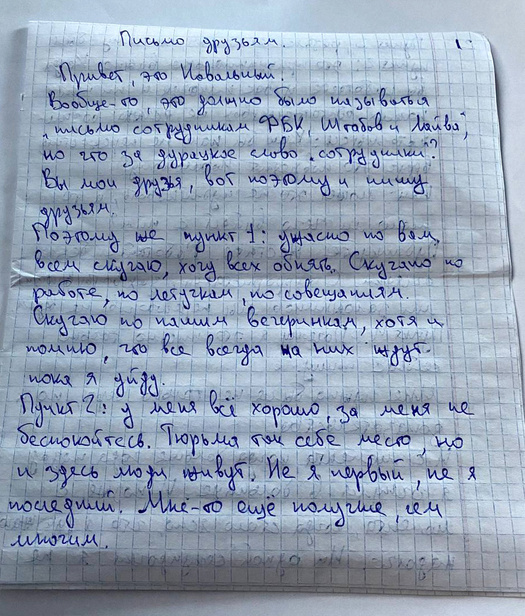 Письмо друзьям.
1.
Привет, это Навальный.
Вообще-то, это должно было называться
„письмо сотрудникам ФБК, Штабов и Лайва",
но что за дурацкое слово „сотрудники"?
Вы мои друзья, вот поэтому и пишу
друзьям.
Поэтому же пункт 1: ужасно по вам
всем скучаю, хочу всех обнять. Скучаю по
работе, по летучкам, по совещаниям.
Скучаю по нашим вечеринкам, хотя и
помню, что все всегда на них ждут
пока я уйду.
Пункт 2: у меня всё хорошо, за меня не
беспокойтесь. Тюрьма так себе место, но
и здесь люди живут. Не я первый, не я
последний. Мне-то ещё получше, чем
многим.